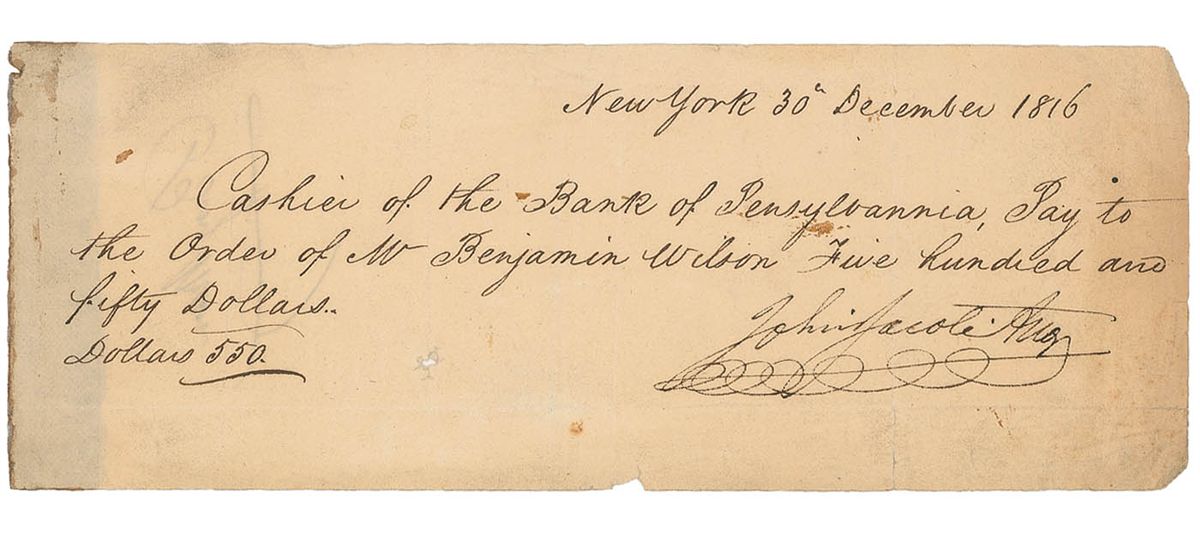 New York 30th December 1816
Cashier of the Bank of Pensylvannia, Pay to
the Order of Mr Benjamin Wilson Five hundred and
fifty Dollars..
Dollars 550.
John Jacob Astor